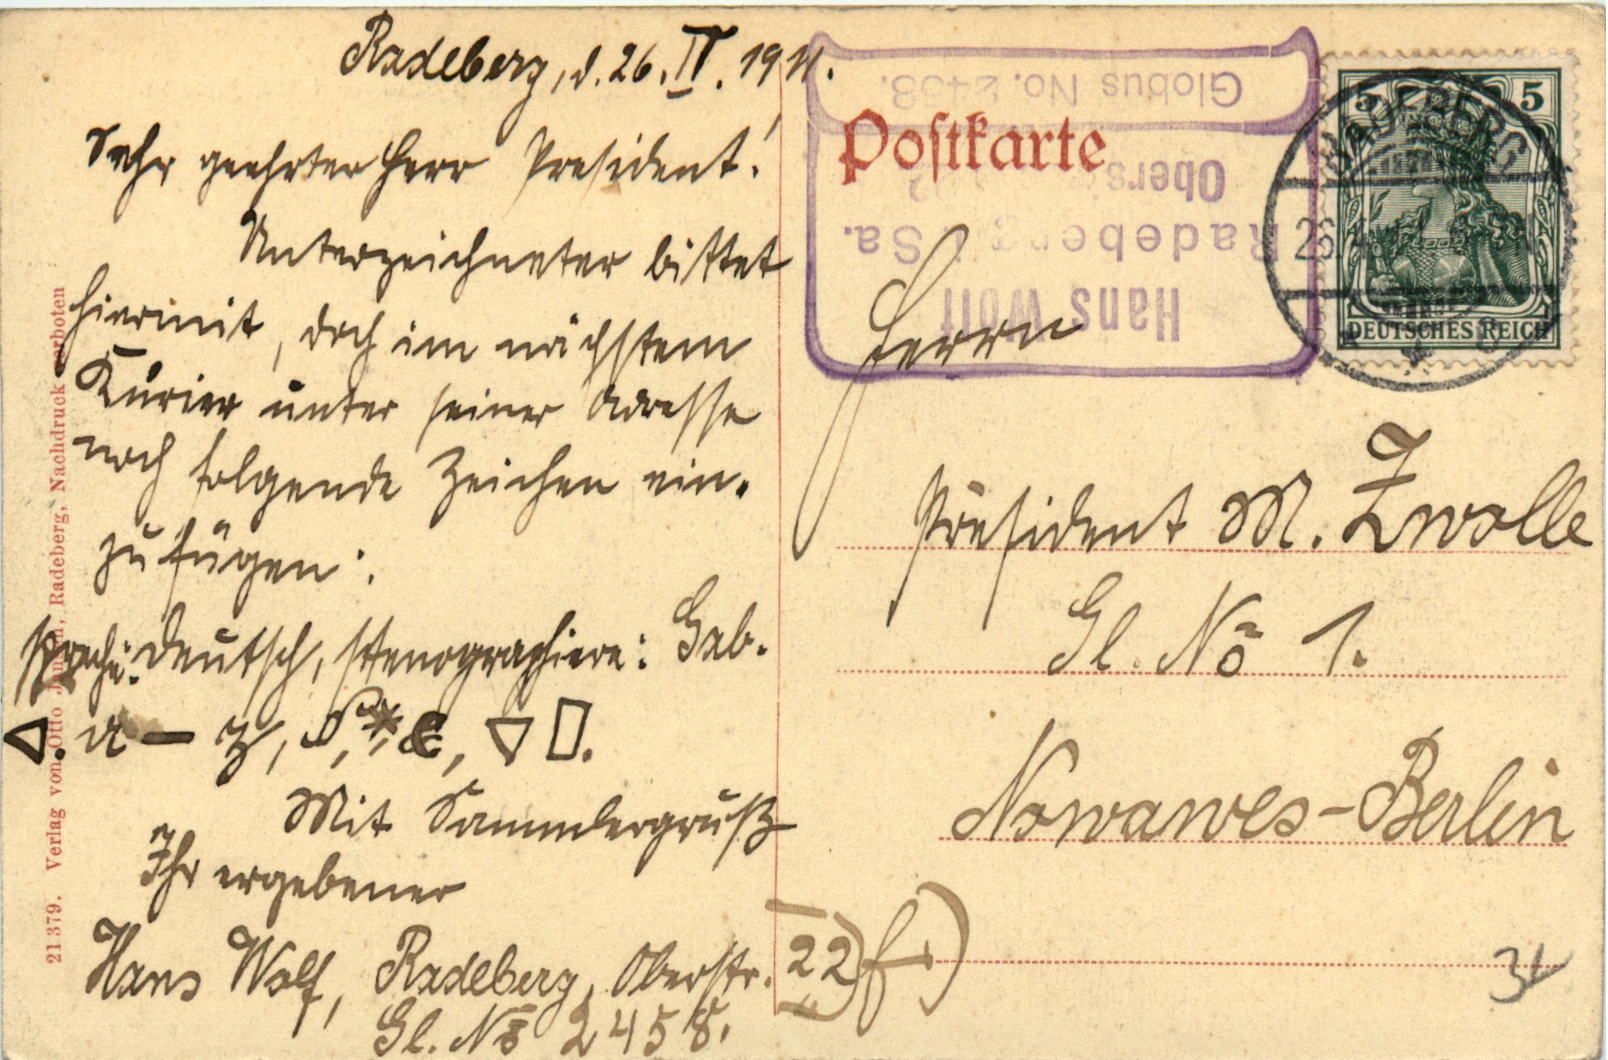 Radeberg, d. 26. IV. 1911.
Sehr geehrter Herr President!
Unterzeichneter bittet
hiermit, doch im nächstem
Kurier unter seiner Adresse
noch folgende Zeichen ein-
zufügen:
Sprache: deutsch, stenographiere: Gab.
△. a — z, *, ▽ ▯.
Mit Sammlergruß
Ihr ergebener
Hans Wolf, Radeberg, Oberstr. 22
Gl. No 2458.
21379. Verlag von Otto Radeberg, Nachdruck verboten
Postkarte
Hans Wolf
Radeberg i. Sa.
Obers
Globus No. 2458.
RADEBERG
5 5
DEUTSCHES REICH
Herrn
Präsident M. Zwolle
Gl. No 1.
Nowawes-Berlin